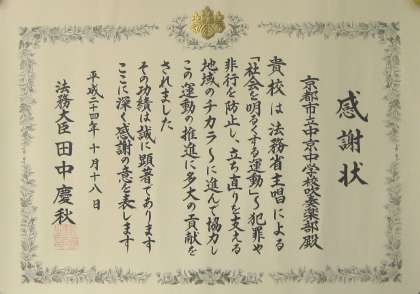 感謝状
京都市立中京中学校吹奏楽部殿
貴校は法務省主唱による
「社会を明るくする運動」～犯罪や
非行を防止し、立ち直りを支える
地域のチカラ～に進んで協力し
この運動の推進に多大の貢献を
されました
その功績は誠に顕著であります
ここに深く感謝の意を表します
平成二十四年十月十八日
法務大臣 田中慶秋